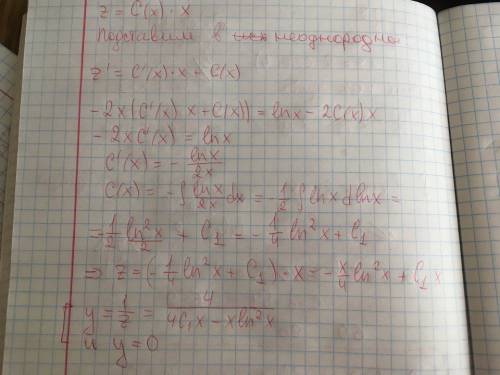 z = C(x) · x
Подставим в неоднородно
z' = C'(x) · x + C(x)
-2x(C'(x) x + C(x)) = lnx - 2C(x)x
-2xC'(x) = lnx
C'(x) = - lnx/2x
C(x) = -∫ lnx/2x dx = -1/2 ∫ lnx dlnx =
= -1/2 ln²x/2 + C₁ = -1/4 ln²x + C₁
⇒ z = (-1/4 ln²x + C₁) · x = -x/4 ln²x + C₁x
y = 1/z = 4/4C₁x - xln²x
и y = 0